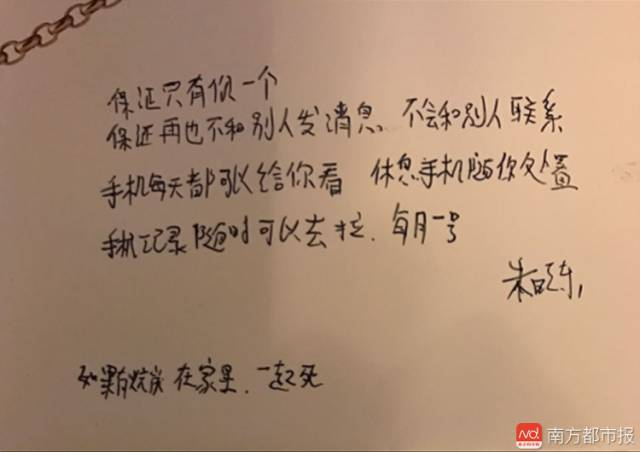 保证只有你一个
保证再也不和别人发消息 不会和别人联系
手机每天都可以给你看 休息手机随你处置
手机记录随时可以去拉、每月一号
朱晓东
如果 在家里、一起死
南方都市报